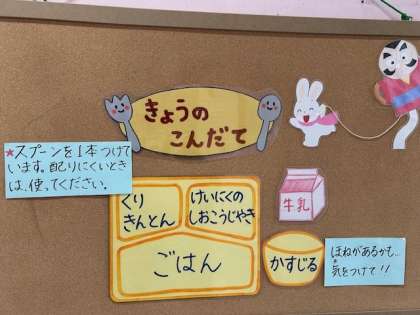 きょうの
こんだて
★スプーンを1本つけて
います。配りにくいとき
は、使ってください。
くり
きんとん
けいにくの
しおこうじやき
ごはん
牛乳
かすじる
ほねがあるかも..
気をつけて!!